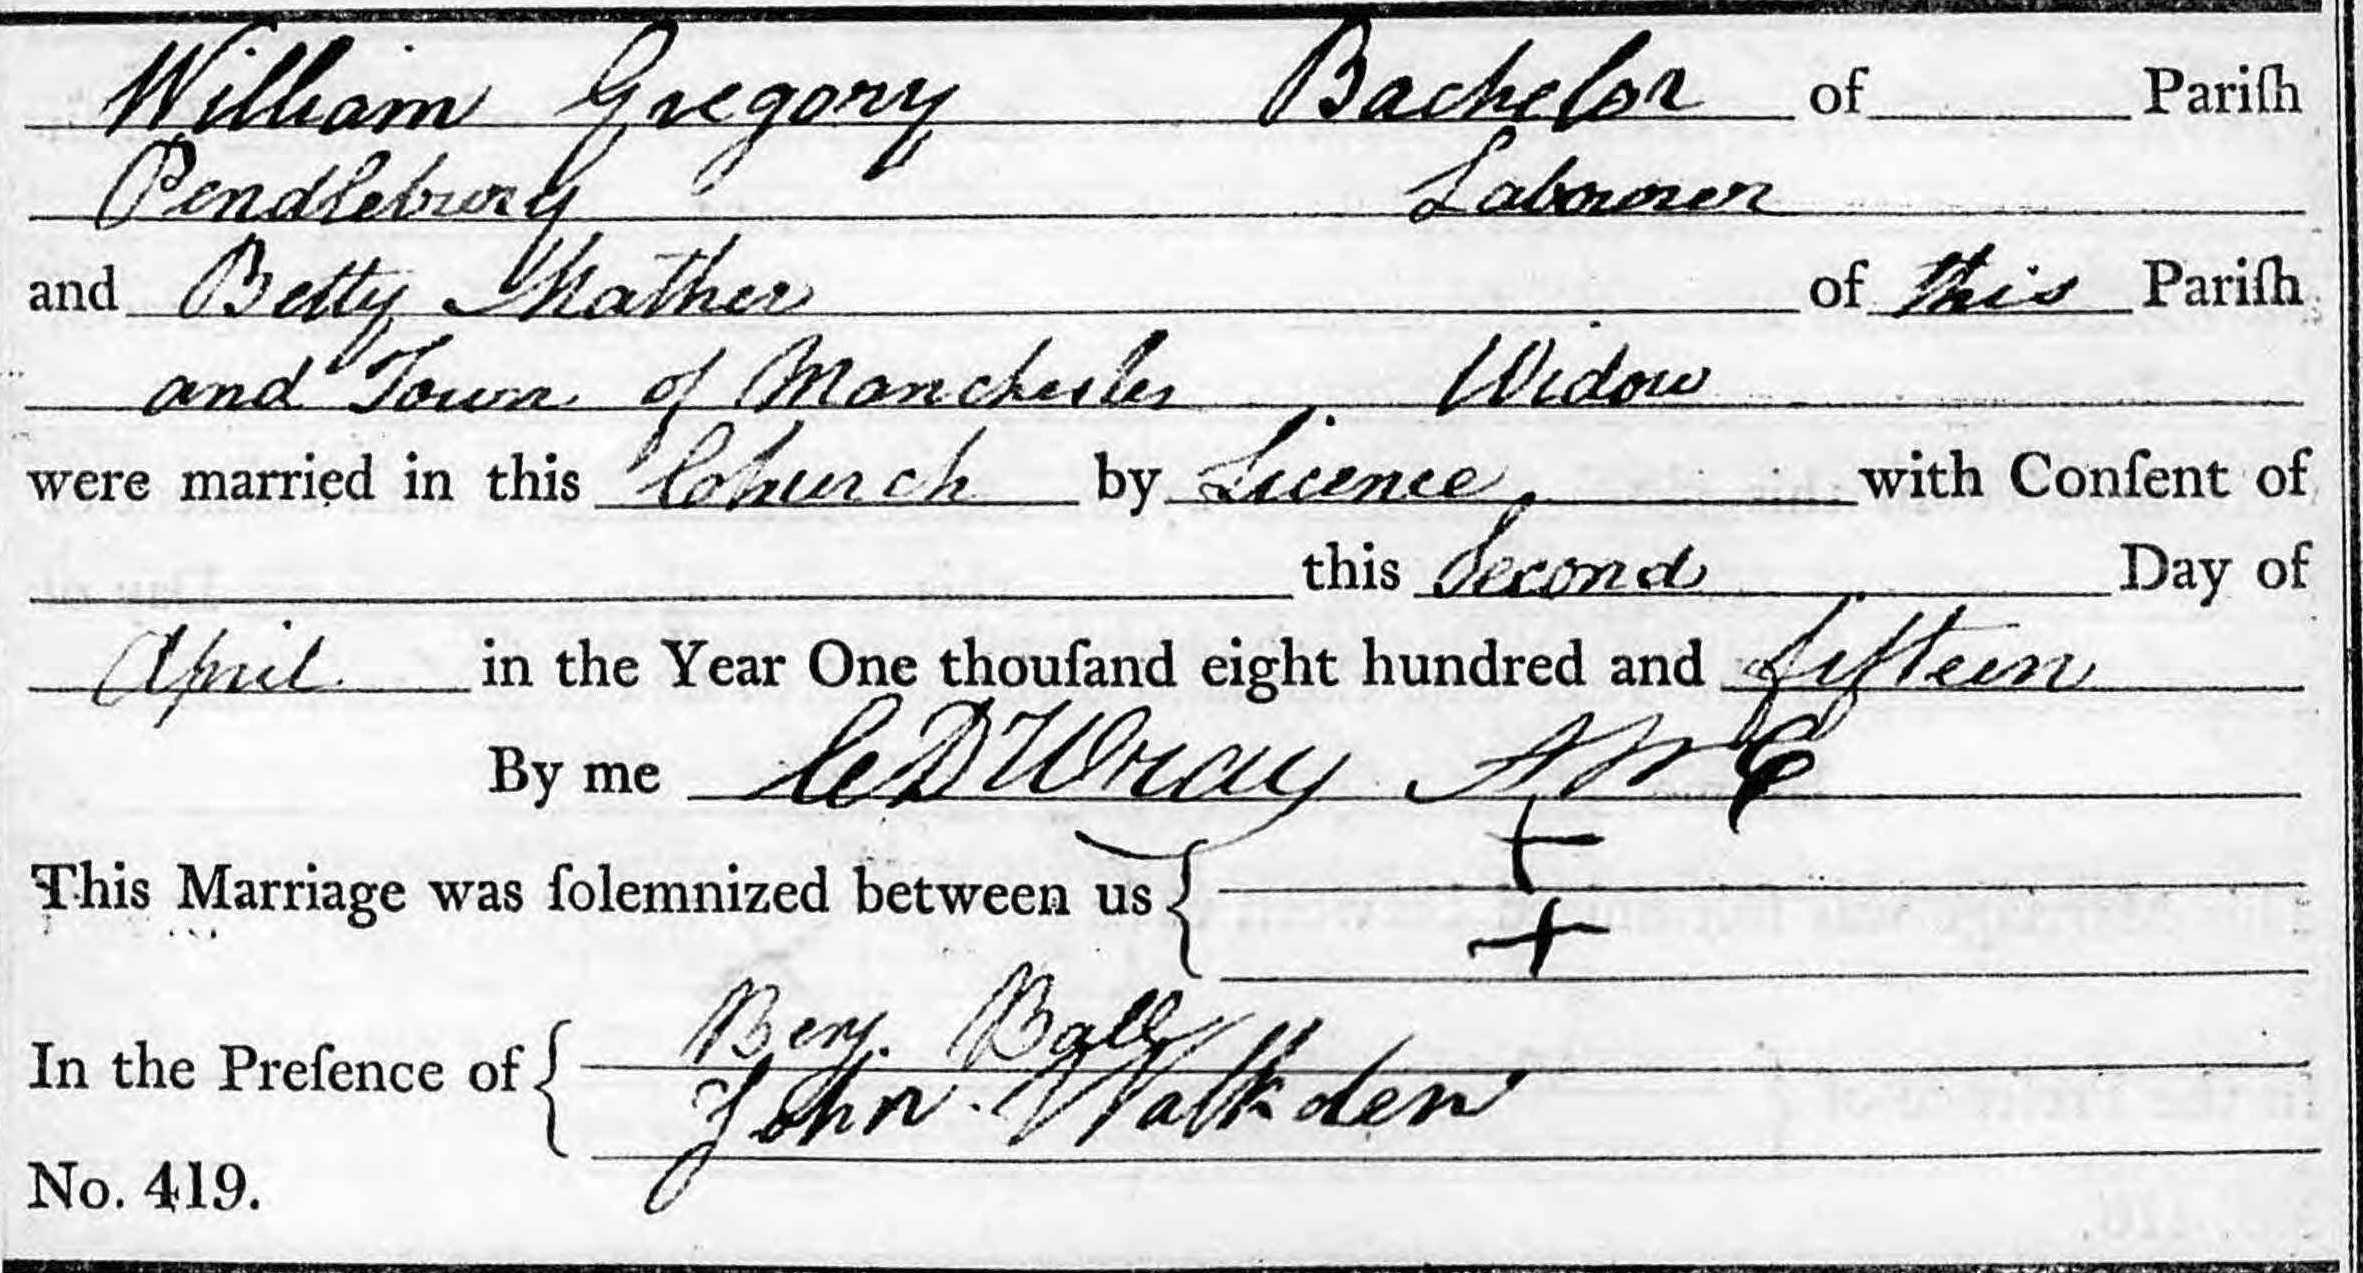 William Gregory Bachelor of Pariſh
Pendlebury Labourer
and Betty Mather of this Pariſh
and Town of Manchester Widow
were married in this Church by Licence with Conſent of
this Second Day of
April in the Year One thouſand eight hundred and fifteen
By me C D Wray
This Marriage was ſolemnized between us { +
+
In the Preſence of { Benj. Ball
John Walkden
No. 419.